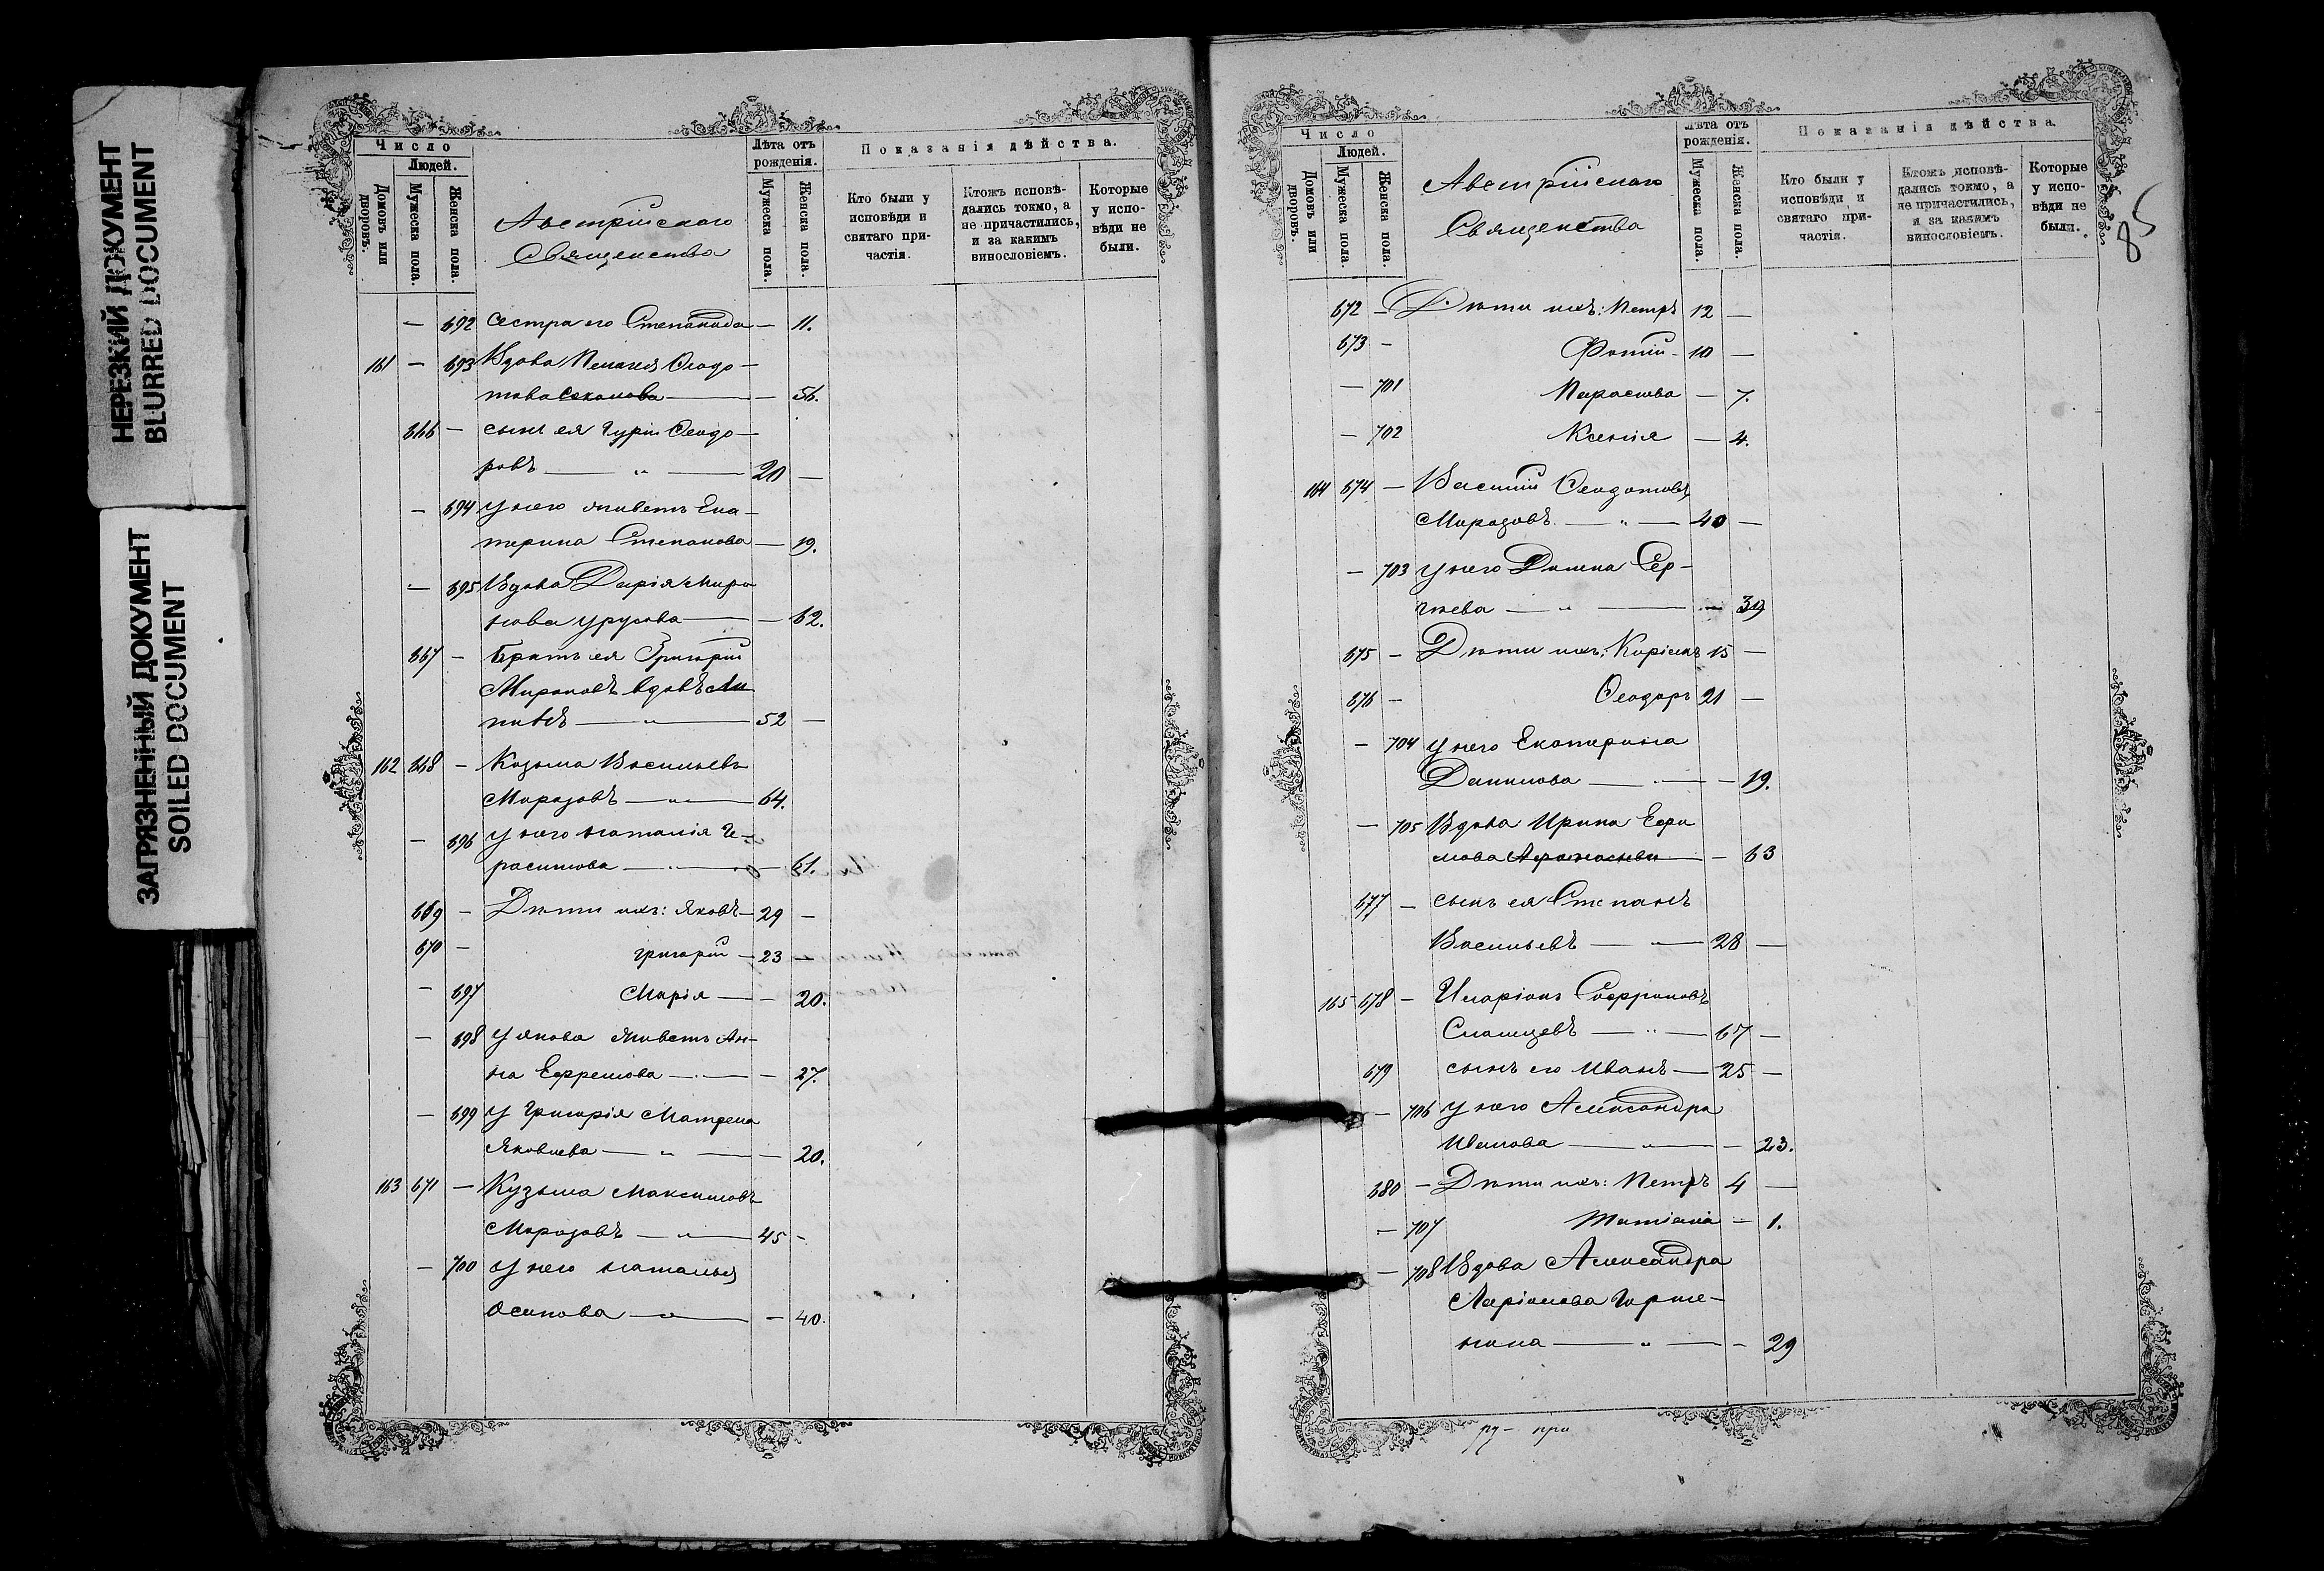 НЕРЕЗКИЙ ДОКУМЕНТ
BLURRED DOCUMENT
ЗАГРЯЗНЕННЫЙ ДОКУМЕНТ
SOILED DOCUMENT
Число
Людей.
Домовъ или дворовъ.
Мужеска пола.
Женска пола
Австрійскаго
Священства
Лѣта отъ рожденія.
Мужеска пола.
Женска пола.
Показанія дѣйства.
Кто были у исповѣди и святаго причастія.
Ктожъ исповѣдались токмо, а не причастились, и за какимъ винословіемъ.
Которые у исповѣди не были.
— 692 Сестра его Степанида — 11.
161 — 693 Вдова Пелагея Ѳеодо-
това — 56.
666 — сынъ ея Гурій Ѳеодо-
ровъ — " — 20 —
— 694 У него живетъ Ека-
терина Степанова — 19.
— 695 Вдова Дарія Миро
нова Урусова — 62.
667 — Братъ ея Григорій
Мироновъ вдовъ
— " — 52 —
162 668 — Козьма Васильевъ
Морозовъ — " — 64.
— 696 У него Наталія Ге-
расимова — 61.
669 — Дѣти ихъ: Яковъ — 29 —
670 — Григорій — 23 —
— 697 Марія — 20.
— 698 У Якова живетъ Ан-
на Ефремова — 27.
— 699 У Григорія Матрена
Яковлева — " — 20.
163 671 — Кузьма Максимовъ
Морозовъ — " — 45 —
— 700 У него Наталья
Осипова — " — 40.
Число
Людей.
Домовъ или дворовъ.
Мужеска пола.
Женска пола.
Австрійскаго
Священства
Лѣта отъ рожденія.
Мужеска пола.
Женска пола.
Показанія дѣйства.
Кто были у исповѣди и святаго причастія.
Ктожъ исповѣдались токмо, а не причастились, и за какимъ винословіемъ.
Которые у исповѣди не были.
85
672 — Дѣти ихъ: Петръ 12 —
673 — Фотій — 10 —
— 701 Параскева — 7.
— 702 Ксенія — 4.
164 674 — Василій Ѳеодотовъ
Морозовъ — " — 40 —
— 703 У него Домна Сер-
гѣева — " — 39
675 — Дѣти ихъ: 15 —
676 — Ѳеодоръ 21 —
— 704 У него Екатерина
Данилова — 19.
— 705 Вдова Ирина Ефи
мова Афанасьева — 63
677 — сынъ ея Степанъ
Васильевъ — " — 28 —
165 678 — Иларіонъ Софроновъ
— " — 67 —
679 сынъ его Иванъ — 25 —
— 706 У него Александра
Иванова — " — 23.
680 — Дѣти ихъ: Петръ 4 —
— 707 Татіана — 1.
— 708 Вдова Александра
Ларіонова Горше-
нина — " — 29